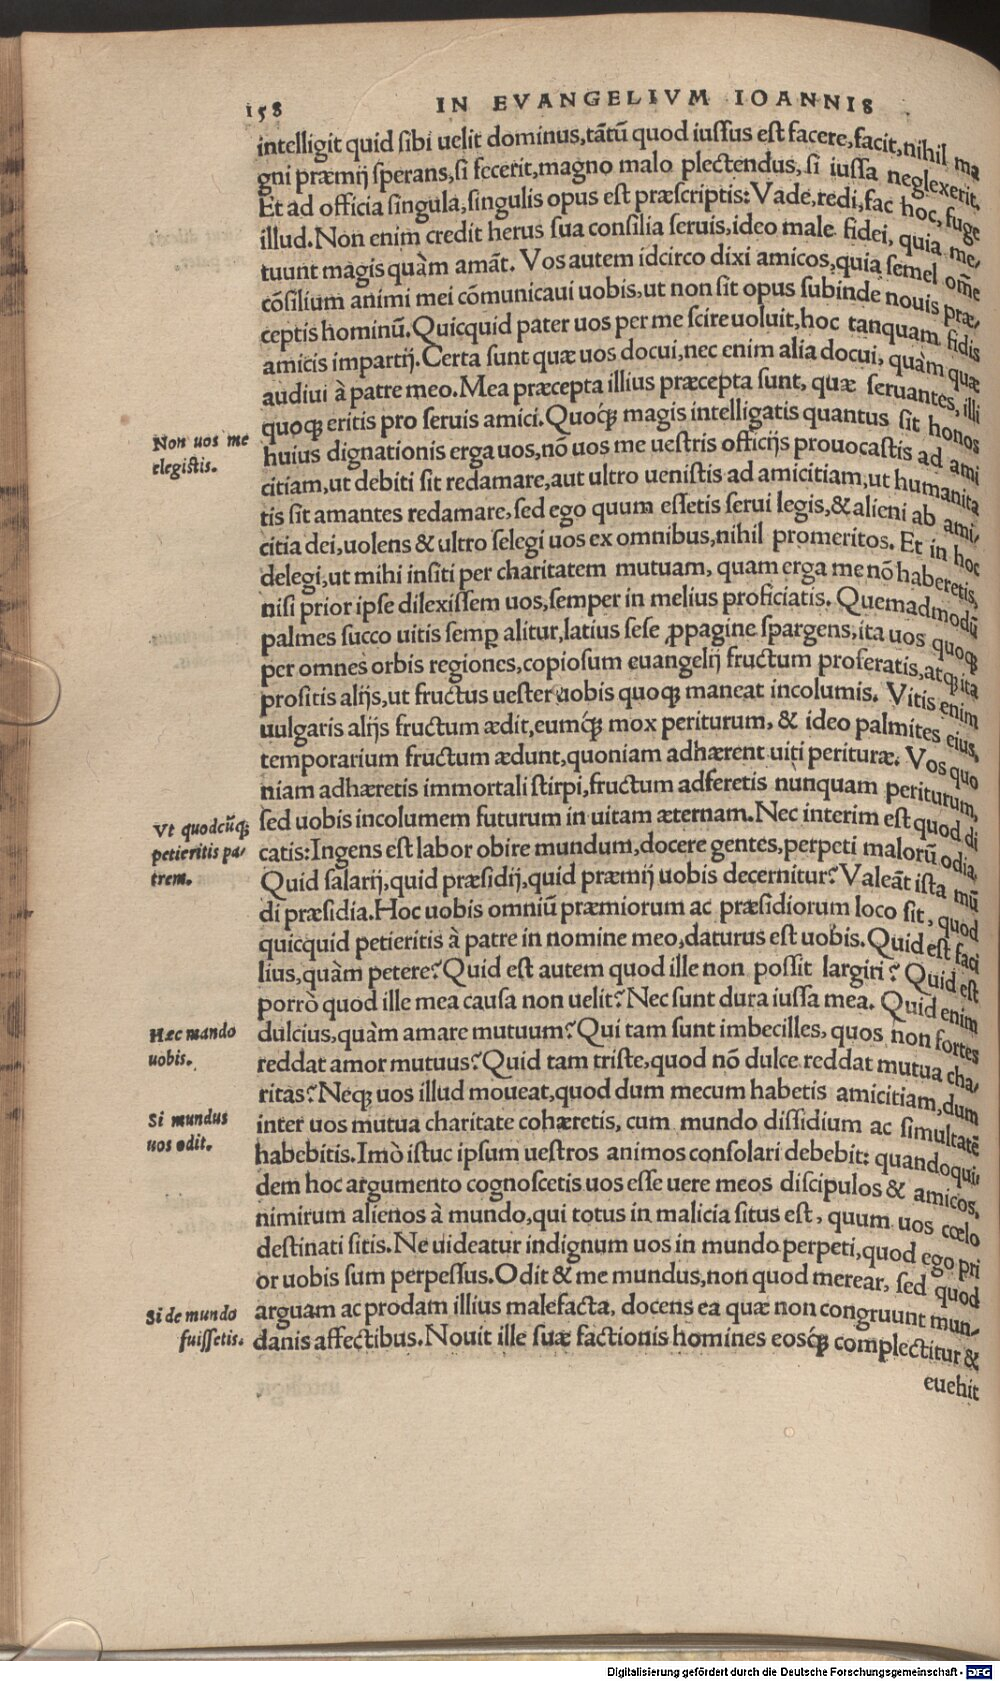 158 IN EVANGELIVM IOANNIS
intelligit quid sibi uelit dominus,tãtũ quod iussus est facere,facit,nihil ma
gni præmij sperans,si fecerit,magno malo plectendus, si iussa neglexerit.
Et ad officia singula,singulis opus est præscriptis: Vade,redi,fac hoc,fuge
illud. Non enim credit herus sua consilia seruis,ideo male fidei, quia me-
tuunt magis quàm amãt. Vos autem idcirco dixi amicos,quia semel om̃e
cõsilium animi mei cõmunicaui uobis,ut non sit opus subinde nouis præ-
ceptis hominũ. Quicquid pater uos per me scire uoluit,hoc tanquam fidis
amicis impartij. Certa sunt quæ uos docui,nec enim alia docui, quàm quæ
audiui à patre meo. Mea præcepta illius præcepta sunt, quæ seruantes,illi
quoqꝫ eritis pro seruis amici. Quoqꝫ magis intelligatis quantus sit honos
Non uos me
elegistis.
huius dignationis erga uos,nõ uos me uestris officijs prouocastis ad ami
citiam,ut debiti sit redamare,aut ultro uenistis ad amicitiam,ut humanita
tis sit amantes redamare,sed ego quum essetis serui legis,& alieni ab ami-
citia dei,uolens & ultro selegi uos ex omnibus,nihil promeritos. Et in hoc
delegi,ut mihi insiti per charitatem mutuam, quam erga me nõ haberetis,
nisi prior ipse dilexissem uos,semper in melius proficiatis. Quemadmodũ
palmes succo uitis semꝑ alitur,latius sese ꝓpagine spargens,ita uos quoqꝫ
per omnes orbis regiones,copiosum euangelij fructum proferatis,atqꝫ ita
prositis alijs,ut fructus uester uobis quoqꝫ maneat incolumis. Vitis enim
uulgaris alijs fructum ædit,eumqꝫ mox periturum, & ideo palmites eius,
temporarium fructum ædunt,quoniam adhærent uiti perituræ. Vos quo
niam adhæretis immortali stirpi,fructum adferetis nunquam periturum,
sed uobis incolumem futurum in uitam æternam. Nec interim est quod di
Vt quodcũqꝫ
petieritis pa-
trem.
catis: Ingens est labor obire mundum,docere gentes,perpeti malorũ odia.
Quid salarij,quid præsidij,quid præmij uobis decernitur? Valeãt ista mũ
di præsidia. Hoc uobis omniũ præmiorum ac præsidiorum loco sit, quod
quicquid petieritis à patre in nomine meo,daturus est uobis. Quid est faci
lius,quàm petere? Quid est autem quod ille non possit largiri? Quid est
porrò quod ille mea causa non uelit? Nec sunt dura iussa mea. Quid enim
Hæc mando
uobis.
dulcius,quàm amare mutuum? Qui tam sunt imbecilles, quos non fortes
reddat amor mutuus? Quid tam triste,quod nõ dulce reddat mutua cha-
ritas? Neqꝫ uos illud moueat,quod dum mecum habetis amicitiam,dum
Si mundus
uos odit.
inter uos mutua charitate cohæretis, cum mundo dissidium ac simultatẽ
habebitis. Imò istuc ipsum uestros animos consolari debebit: quandoqui-
dem hoc argumento cognoscetis uos esse uere meos discipulos & amicos,
nimirum alienos à mundo,qui totus in malicia situs est, quum uos cœlo
destinati sitis. Ne uideatur indignum uos in mundo perpeti,quod ego pri
or uobis sum perpessus. Odit & me mundus,non quod merear, sed quod
Si de mundo
fuissetis.
arguam ac prodam illius malefacta, docens ea quæ non congruunt mun-
danis affectibus. Nouit ille suæ factionis homines eosqꝫ complectitur &
euehit
Digitalisierung gefördert durch die Deutsche Forschungsgemeinschaft - DFG